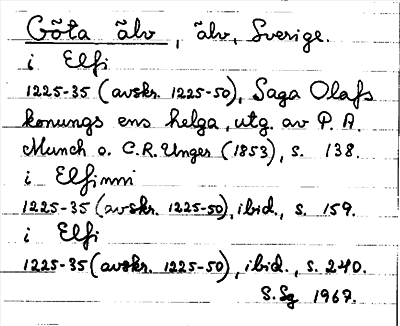 Göta älv, älv, Sverige.
i Elfi
1225-35 (avskr. 1225-50), Saga Olafs
konungs ens helga, utg. av P. A.
Munch o. C.R. Unger (1853), s. 138.
i Elfinni
1225-35 (avskr. 1225-50), ibid., s. 159.
i Elfi
1225-35 (avskr. 1225-50), ibid., s. 240.
S.Sg 1967.